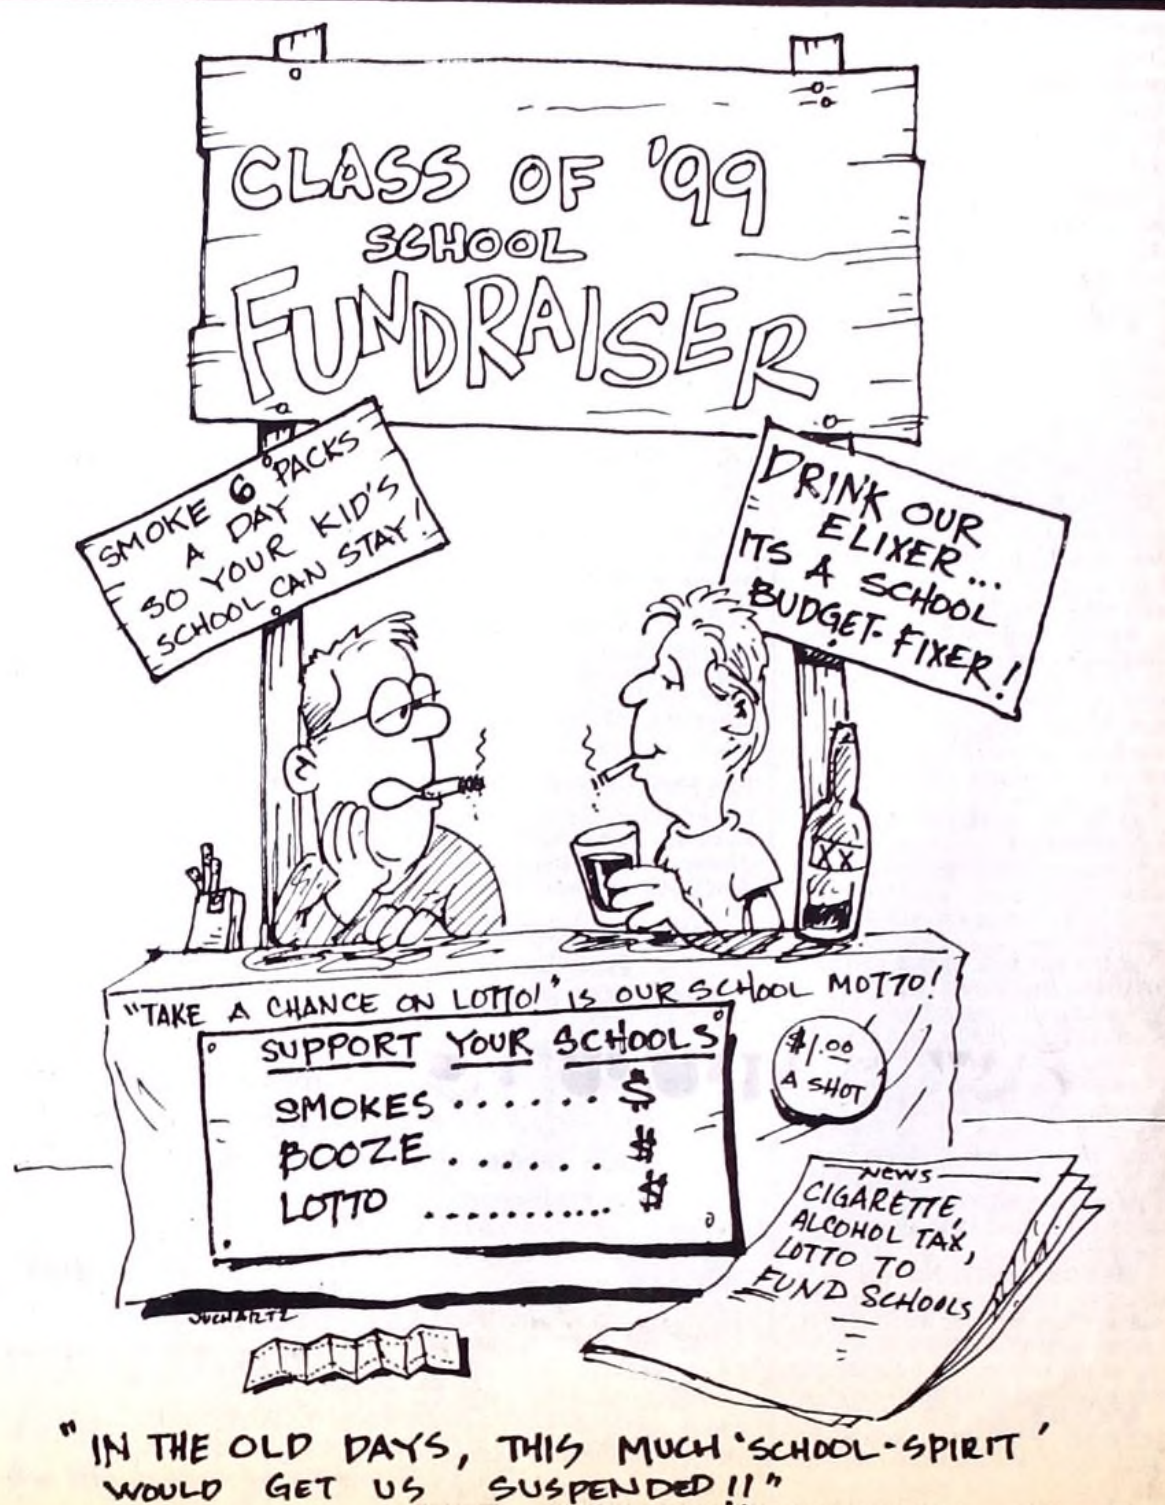 CLASS OF '99
SCHOOL
FUNDRAISER
SMOKE 6 PACKS
A DAY
SO YOUR KID'S
SCHOOL CAN STAY!
DRINK OUR
ELIXER...
ITS A SCHOOL
BUDGET-FIXER!
XX
"TAKE A CHANCE ON LOTTO!" IS OUR SCHOOL MOTTO!
SUPPORT YOUR SCHOOLS
SMOKES ...... $
BOOZE ...... $
LOTTO ........... $
$1.00
A SHOT
NEWS
CIGARETTE,
ALCOHOL TAX,
LOTTO TO
FUND SCHOOLS
SUCHARTZ
"IN THE OLD DAYS, THIS MUCH 'SCHOOL-SPIRIT'
WOULD GET US SUSPENDED!!"